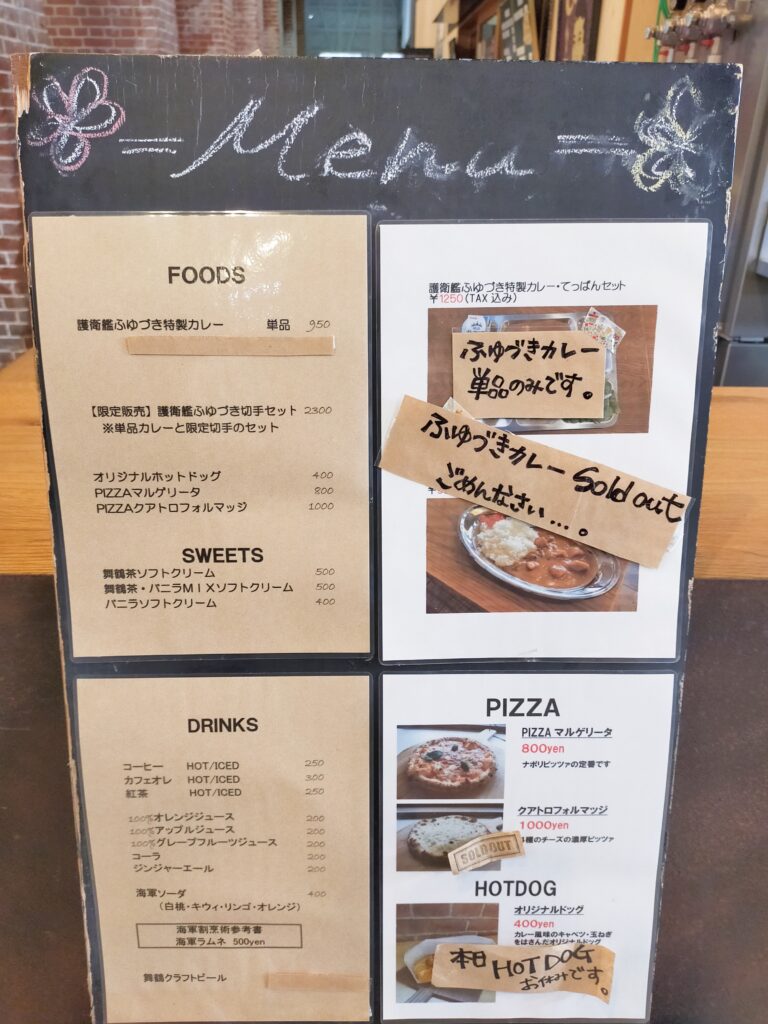 Menu
FOODS
護衛艦ふゆづき特製カレー 単品 950
【限定販売】護衛艦ふゆづき切手セット 2300
※単品カレーと限定切手のセット
オリジナルホットドッグ 400
PIZZAマルゲリータ 800
PIZZAクアトロフォルマッジ 1000
SWEETS
舞鶴茶ソフトクリーム 500
舞鶴茶・バニラMIXソフトクリーム 500
バニラソフトクリーム 400
護衛艦ふゆづき特製カレー・てっぱんセット
¥1250(TAX込み)
ふゆづきカレー
単品のみです。
ふゆづきカレー Sold out
ごめんなさい...。
DRINKS
コーヒー HOT/ICED 250
カフェオレ HOT/ICED 300
紅茶 HOT/ICED 250
100%オレンジジュース 200
100%アップルジュース 200
100%グレープフルーツジュース 200
コーラ 200
ジンジャーエール 200
海軍ソーダ 400
(白桃・キウィ・リンゴ・オレンジ)
海軍割烹術参考書
海軍ラムネ 500yen
舞鶴クラフトビール
PIZZA
PIZZA マルゲリータ
800yen
ナポリピッツァの定番です
クアトロフォルマッジ
1000yen
種のチーズの濃厚ピッツァ
SOLD OUT
HOTDOG
オリジナルドッグ
400yen
カレー風味のキャベツ・玉ねぎ
をはさんだオリジナルドッグ
本日 HOT DOG
お休みです。